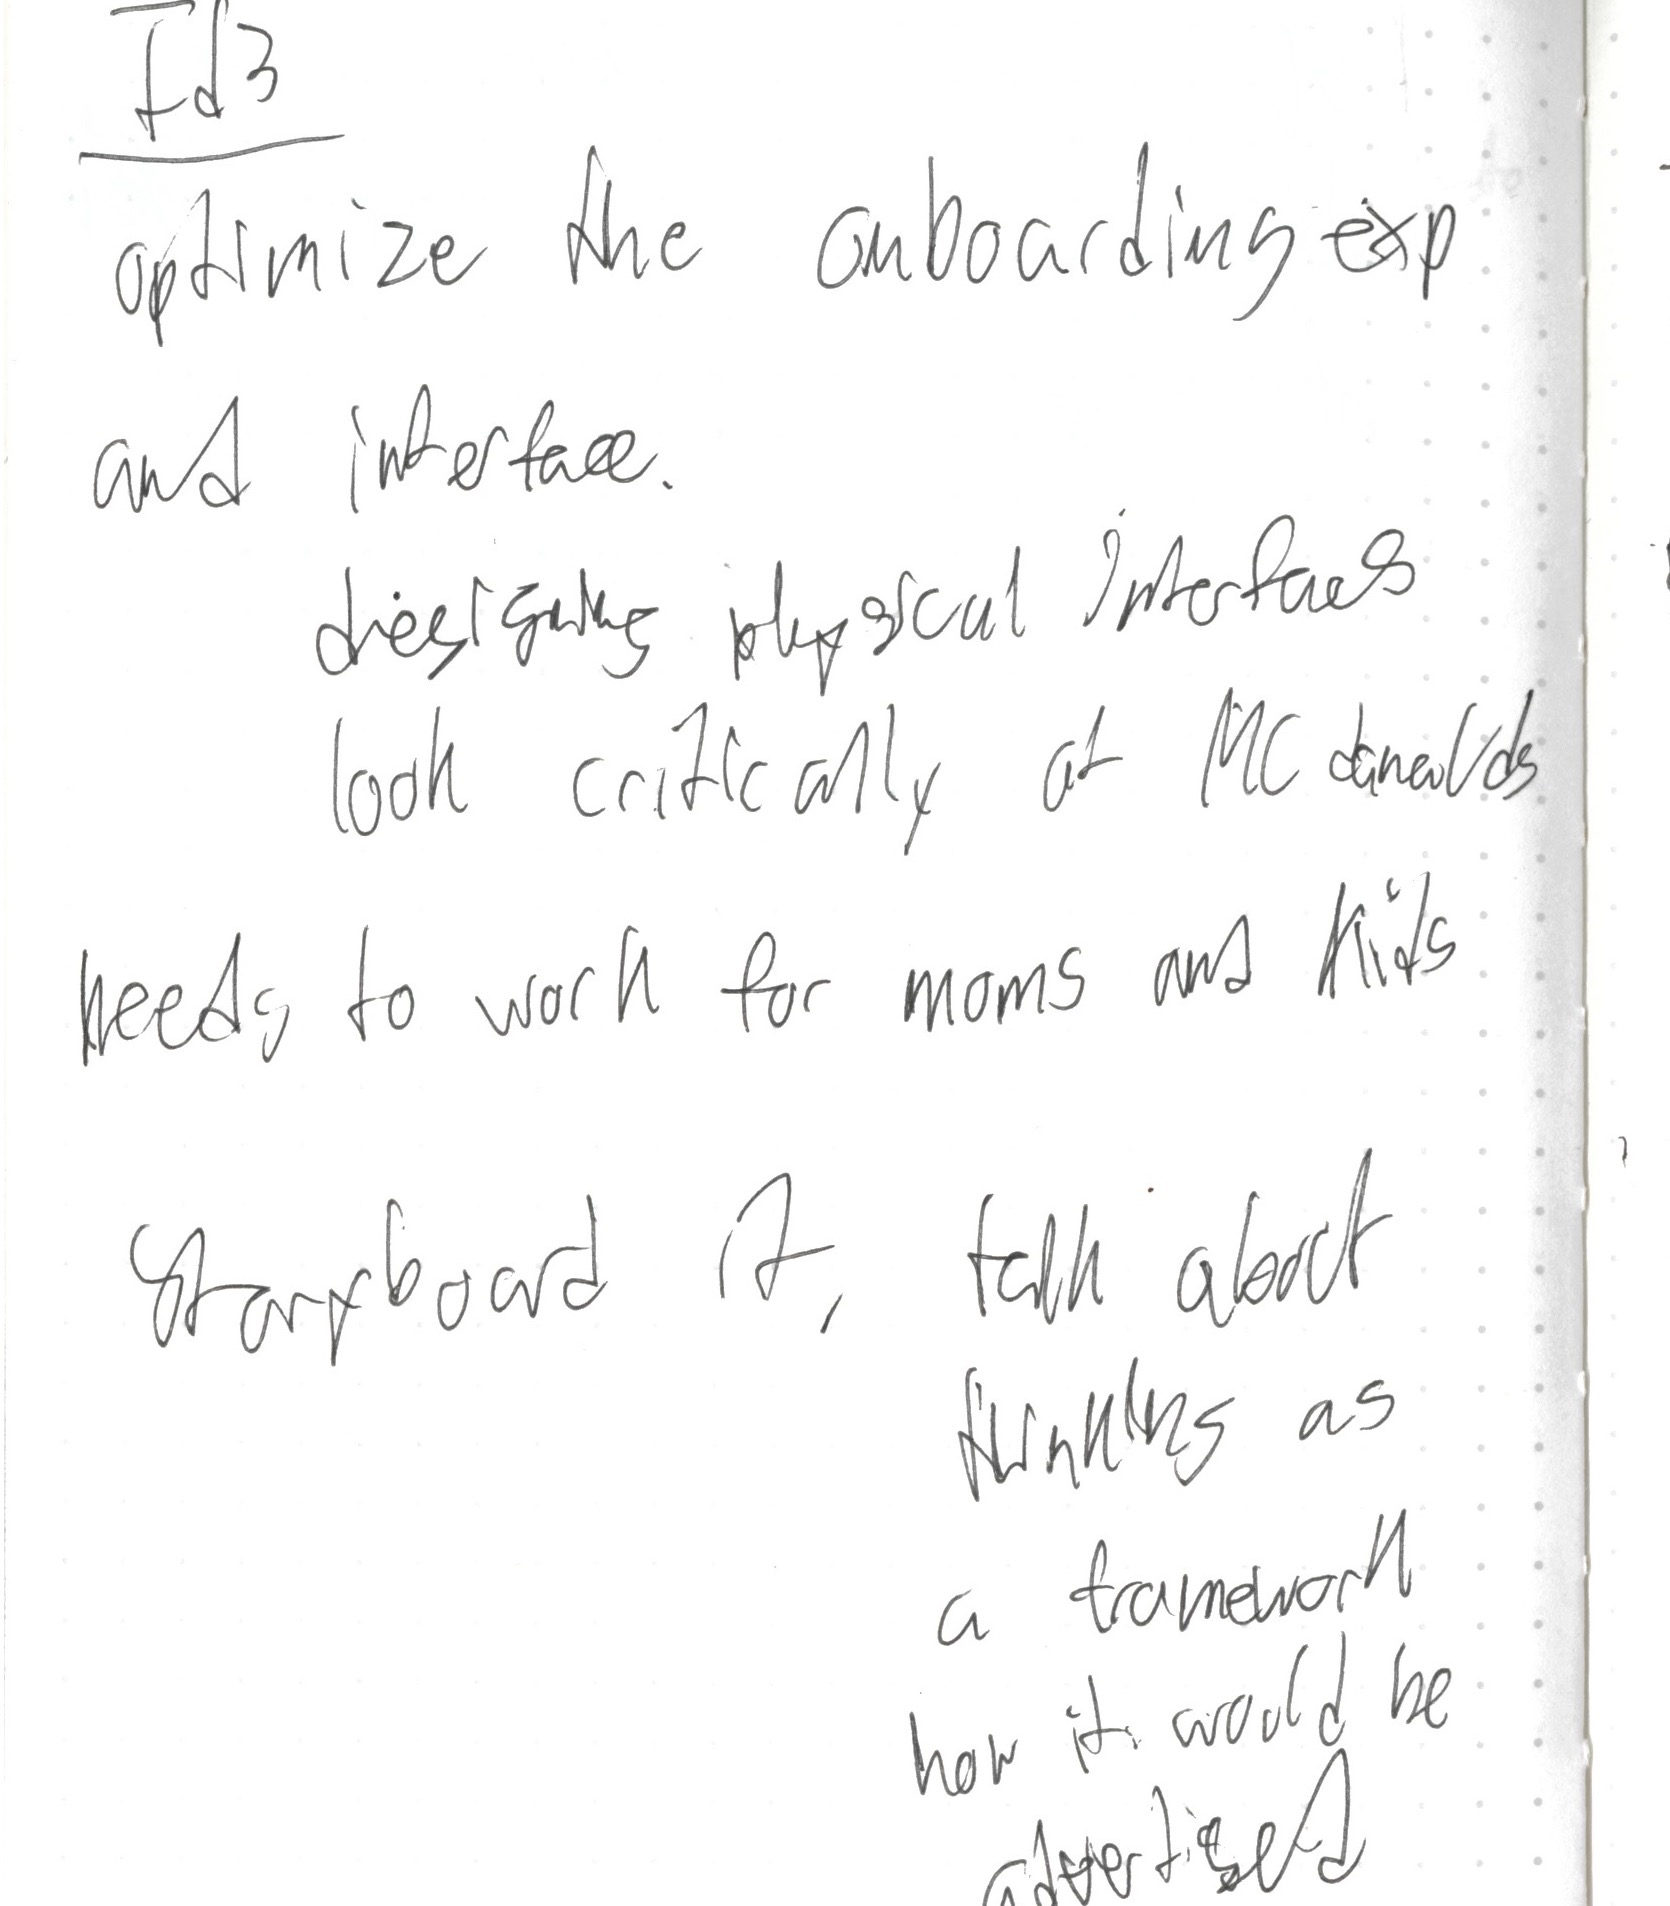 Id3
optimize the onboarding exp
and interface.
designing physical interfaces
look critically at MC donalds
needs to work for moms and kids
Storyboard it, talk about
thinking as
a framework
how it would be
advertised